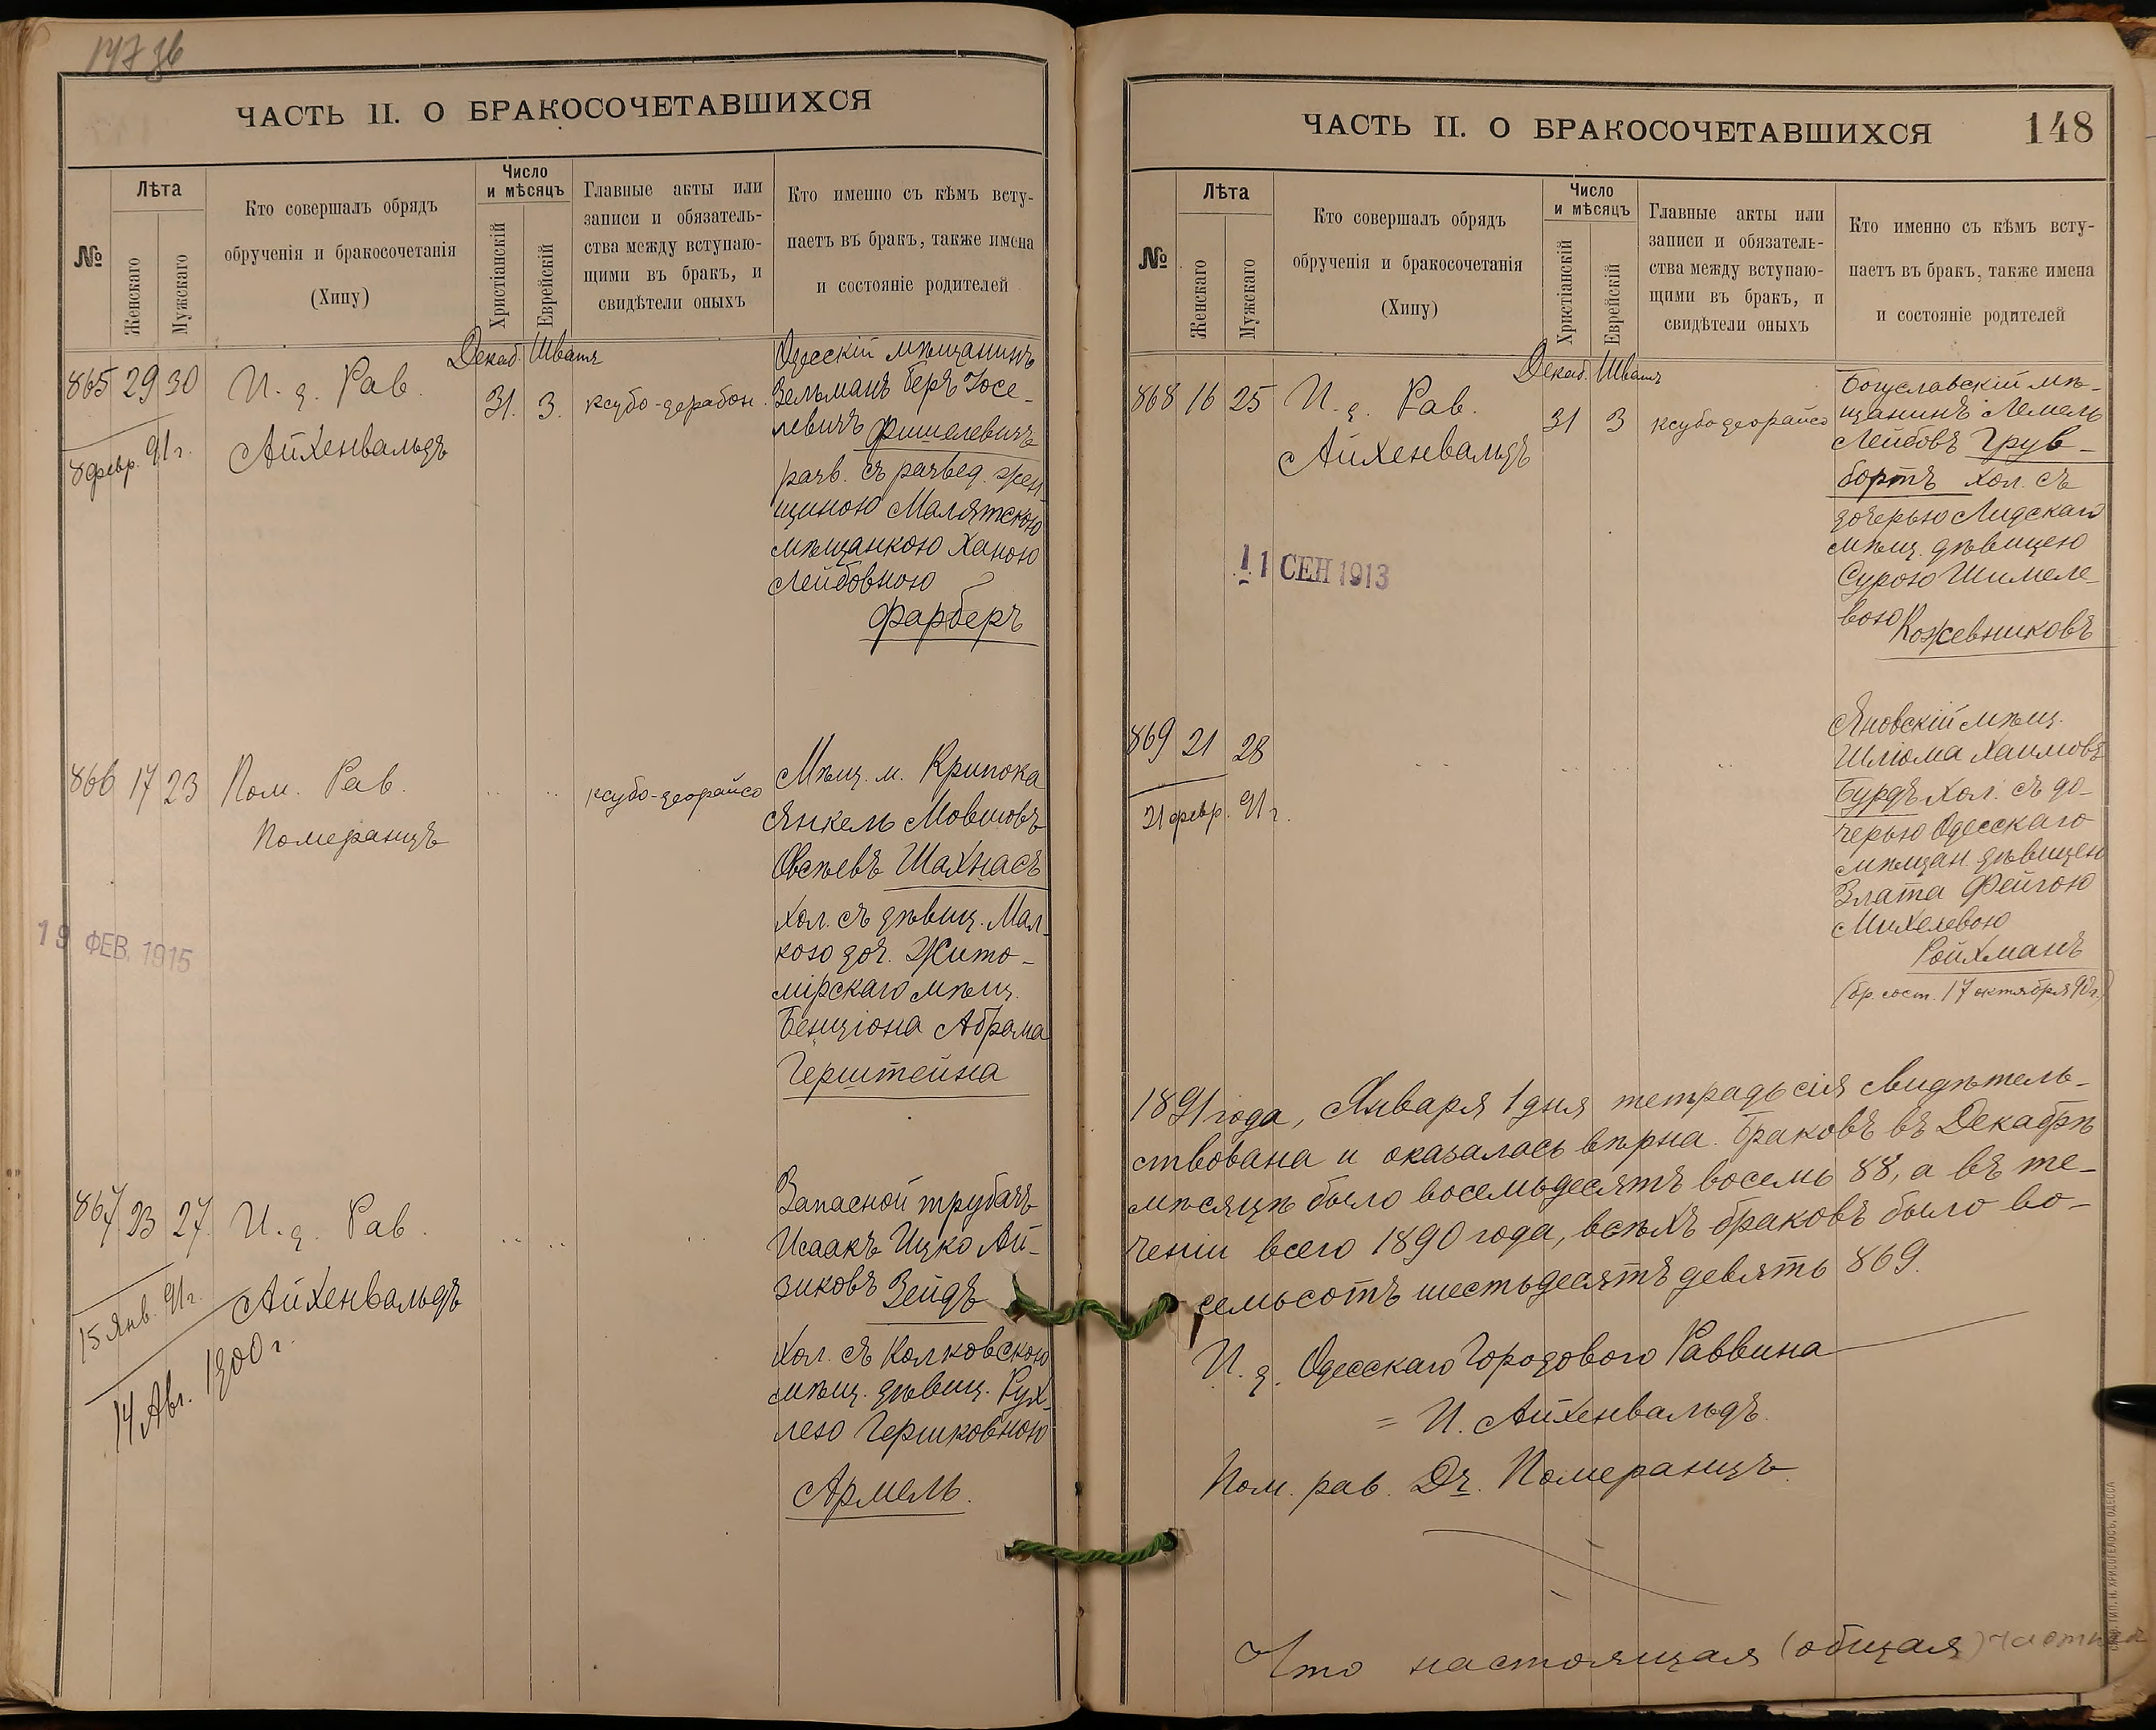 147 зб
ЧАСТЬ II. О БРАКОСОЧЕТАВШИХСЯ
№
Лѣта
Женскаго
Мужскаго
Кто совершалъ обрядъ
обрученія и бракосочетанія
(Хипу)
Число
и мѣсяцъ
Христіанскій
Еврейскій
Главные акты или
записи и обязатель-
ства между вступаю-
щими въ бракъ, и
свидѣтели оныхъ
Кто именно съ кѣмъ всту-
паетъ въ бракъ, также имена
и состояніе родителей
Декаб. Шватъ
865 29 30 И. д. Рав. 31. 3. ксубо-дерабон.
Айхенвальдъ
8 февр. 91 г.
Одесскій мѣщанинъ
Зельманъ Беръ Іосе-
левичъ Фишелевичъ
разв. съ развед. жен
щиною Малятскою
мѣщанкою Ханою
Лейбовною
Фарберъ
866 17 23 Пом. Рав. .. .. ксубо-деорайсо
Померанцъ
19 ФЕВ. 1915
Мѣщ. м. Крипока
Янкель Мовшовъ
Овсѣевъ Шахнасъ
хол. съ дѣвиц. Мал-
кою доч. Жито-
мірскаго мѣщ.
Бенціона Абрама
Герштейна
867 23 27 И. д. Рав. .. .. ..
Айхенвальдъ
15 Янв. 91 г.
14 Авг. 1900 г.
Запасной трубачъ
Исаакъ Ицко Ай-
зиковъ Зейдъ
хол. съ Колковскою
мѣщ. дѣвиц. Рух-
лею Гершковною
Армель.
ЧАСТЬ II. О БРАКОСОЧЕТАВШИХСЯ 148
№
Лѣта
Женскаго
Мужскаго
Кто совершалъ обрядъ
обрученія и бракосочетанія
(Хипу)
Число
и мѣсяцъ
Христіанскій
Еврейскій
Главные акты или
записи и обязатель-
ства между вступаю-
щими въ бракъ, и
свидѣтели оныхъ
Кто именно съ кѣмъ всту-
паетъ въ бракъ, также имена
и состояніе родителей
Декаб. Шватъ
868 16 25 И. д. Рав. 31 3 ксубо деорайсо
Айхенвальдъ
11 СЕН 1913
Богуславскій мѣ-
щанинъ Лемель
Лейбовъ Грув-
бортъ хол. съ
дочерью Лидскаго
мѣщ. дѣвицею
Сурою Шимеле-
вою Кожевниковъ
869 21 28 .. .. ..
21 февр. 91 г.
Яновскій мѣщ.
Шлюма Хаимовъ
Бурдъ хол. съ до-
черью Одесскаго
мѣщан. дѣвицею
Злата Фейгою
Михелевою
Ройхманъ
(бр. сост. 17 октября 90 г.)
1891 года, Января 1 дня тетрадь сія свидѣтель-
ствована и оказалась вѣрна. Браковъ въ Декабрѣ
мѣсяцѣ было восемьдесятъ восемь 88, а въ те-
ченіи всего 1890 года, всѣхъ браковъ было во-
семьсотъ шестьдесятъ девять 869.
И. д. Одесскаго Городового Раввина
= И. Айхенвальдъ.
Пом. рав. Dr. Померанцъ
Что настоящая (общая) частная
ТИП. Н. ХРИСОГЕЛОСЪ, ОДЕССА